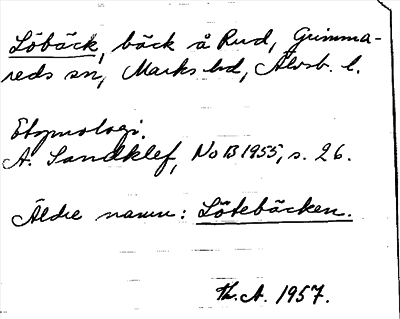 Löbäck, bäck å Rud, Grimma-
reds sn, Marks hd, Älvsb. l.
Etymologi.
A. Sandklef, NoB 1955, s. 26.
Äldre namn: Lötebäcken.
Th. A. 1957.